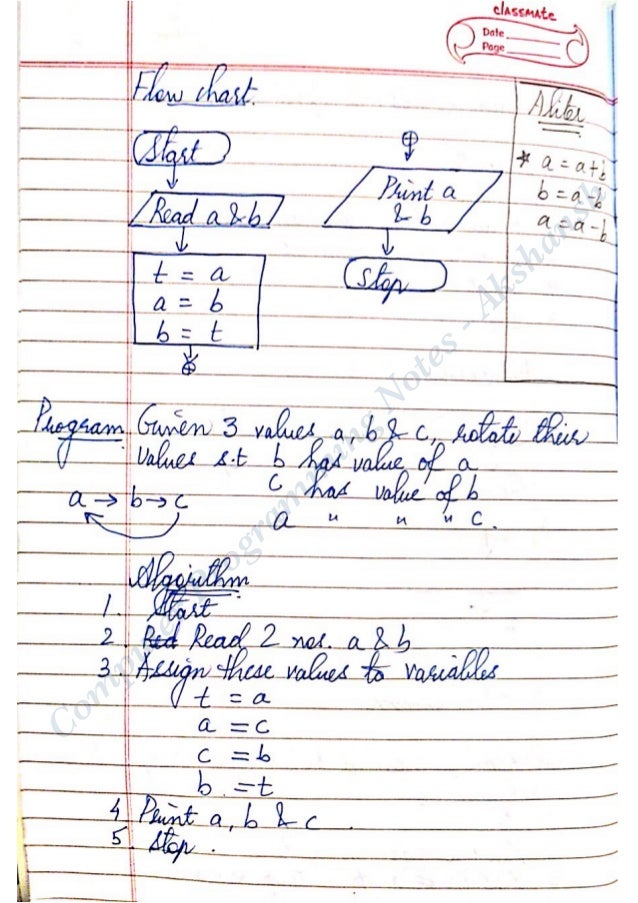 classmate
Date
Page
Flow chart.
Start
Read a & b
t = a
a = b
b = t
Print a
& b
Stop
Aliter
* a = a+b
b = a-b
a = a-b
Program Given 3 values a, b & c, rotate their
values s.t b has value of a
c has value of b
a " " " c.
a → b → c
Algorithm
1. Start
2. Red Read 2 nos. a & b
3 Assign these values to variables
t = a
a = c
c = b
b = t
4 Print a, b & c.
5. Stop.
Computer Programming Notes - Akshansh